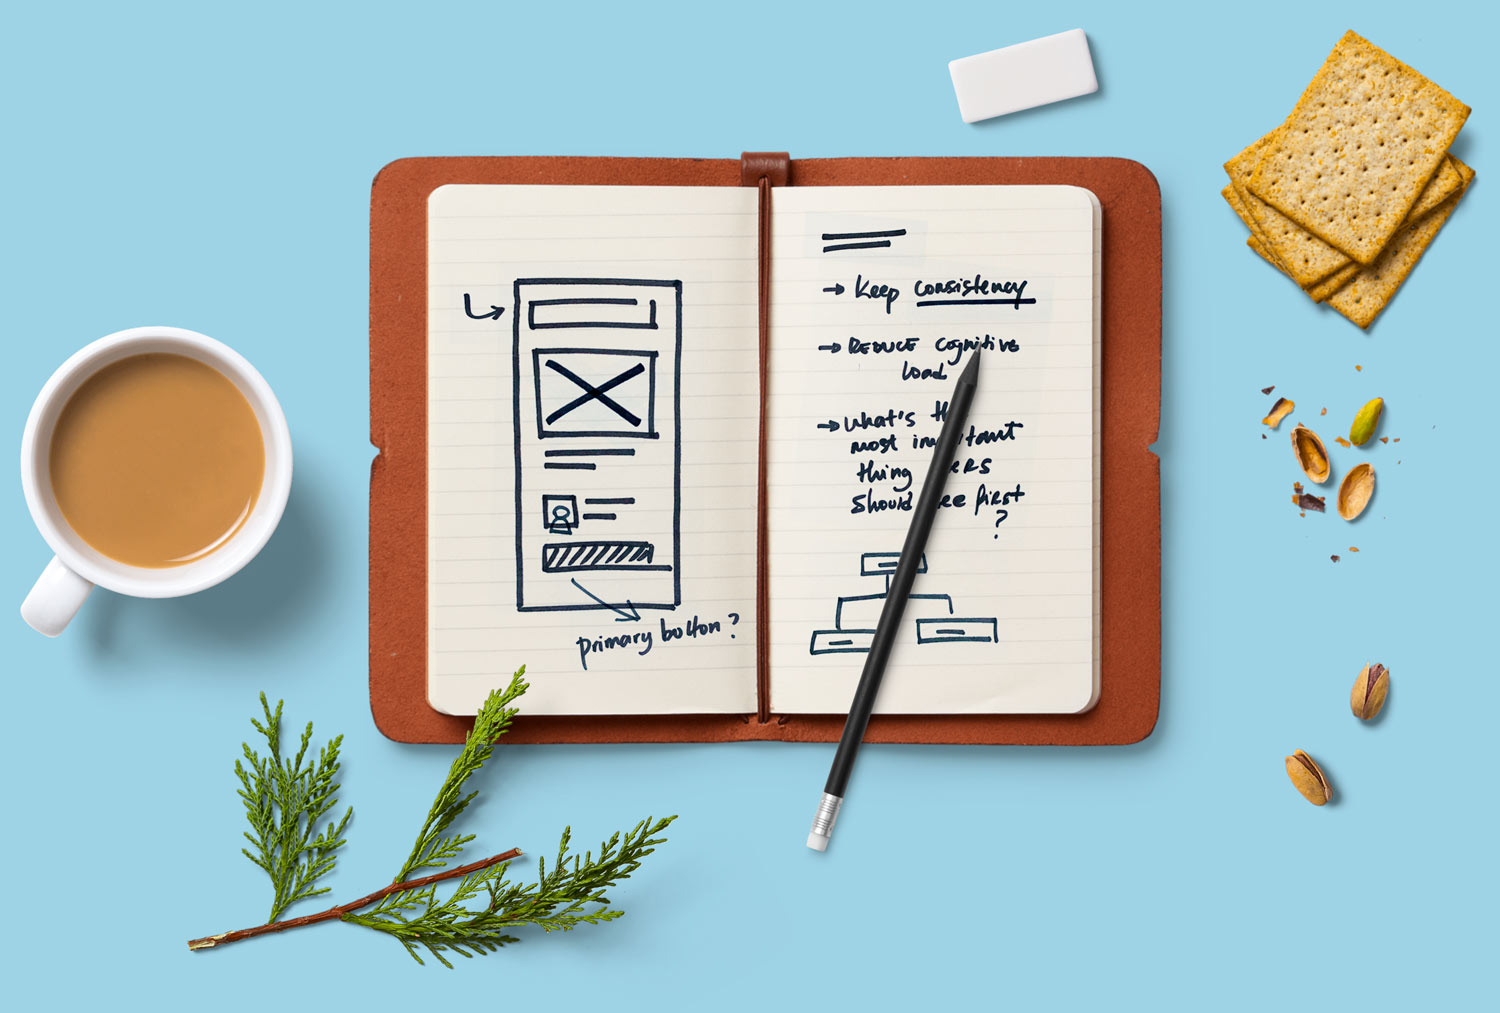 primary button?
→ Keep consistency
→ REDUCE cognitive
load
→ What's the
most important
thing
should see first
?